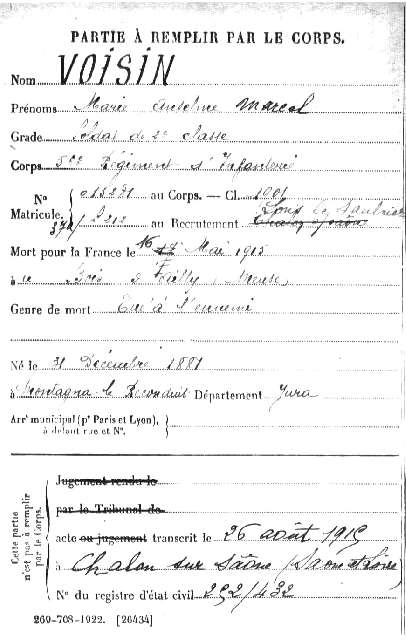 PARTIE À REMPLIR PAR LE CORPS.
Nom VOISIN
Prénoms Marie Anselme Marcel
Grade Soldat de 2e classe
Corps Régiment d'Infanterie
No 015281 au Corps. — Cl. 1901
Matricule. au Recrutement Lons le Saunier
Mort pour la France le 16 Mai 1915
à Bois d' Meuse
Genre de mort Tué à l'ennemi
Né le 31 Décembre 1881
à Montagna le Reconduit Département Jura
Arrt municipal (pr Paris et Lyon),
à défaut rue et No.
Cette partie
n'est pas à remplir
par le Corps.
Jugement rendu le
par le Tribunal de
acte ou jugement transcrit le 26 août 1915
à Chalon sur Saône (Saône et Loire)
No du registre d'état civil 292/432
260-708-1922. [26434]